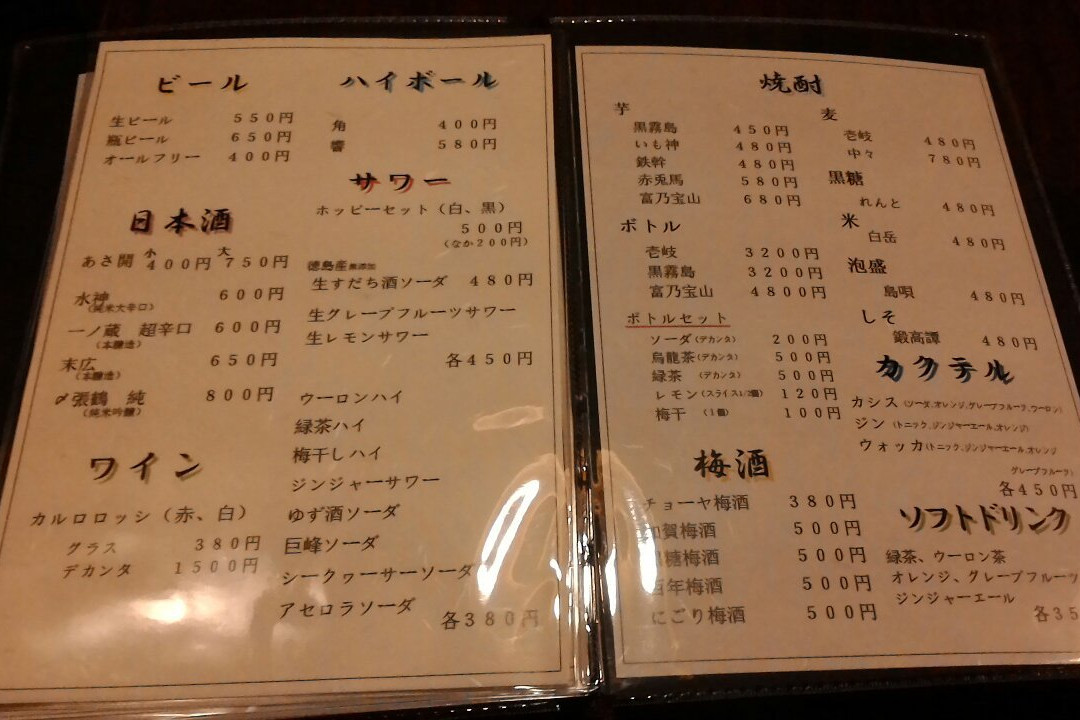 ビール
生ビール 550円
瓶ビール 650円
オールフリー 400円
日本酒
小 大
あさ開 400円 750円
水神 600円
(純米大辛口)
一ノ蔵 超辛口 600円
(本醸造)
末広 650円
(本醸造)
〆張鶴 純 800円
(純米吟醸)
ワイン
カルロロッシ(赤、白)
グラス 380円
デカンタ 1500円
ハイボール
角 400円
響 580円
サワー
ホッピーセット(白、黒)
500円
(なか200円)
徳島産無添加
生すだち酒ソーダ 480円
生グレープフルーツサワー
生レモンサワー
各450円
ウーロンハイ
緑茶ハイ
梅干しハイ
ジンジャーサワー
ゆず酒ソーダ
巨峰ソーダ
シークヮーサーソーダ
アセロラソーダ
各380円
焼酎
芋
黒霧島 450円
いも神 480円
鉄幹 480円
赤兎馬 580円
富乃宝山 680円
ボトル
壱岐 3200円
黒霧島 3200円
富乃宝山 4800円
ボトルセット
ソーダ(デカンタ) 200円
烏龍茶(デカンタ) 500円
緑茶 (デカンタ) 500円
レモン(スライス1/2個) 120円
梅干 (1個) 100円
麦
壱岐 480円
中々 780円
黒糖
れんと 480円
米
白岳 480円
泡盛
島唄 480円
しそ
鍛高譚 480円
カクテル
カシス(ソーダ,オレンジ,グレープフルーツ,ウーロン)
ジン(トニック,ジンジャーエール,オレンジ)
ウォッカ(トニック,ジンジャーエール,オレンジ
グレープフルーツ)
各450円
梅酒
チョーヤ梅酒 380円
加賀梅酒 500円
糖梅酒 500円
百年梅酒 500円
にごり梅酒 500円
ソフトドリンク
緑茶、ウーロン茶
オレンジ、グレープフルーツ
ジンジャーエール
各35